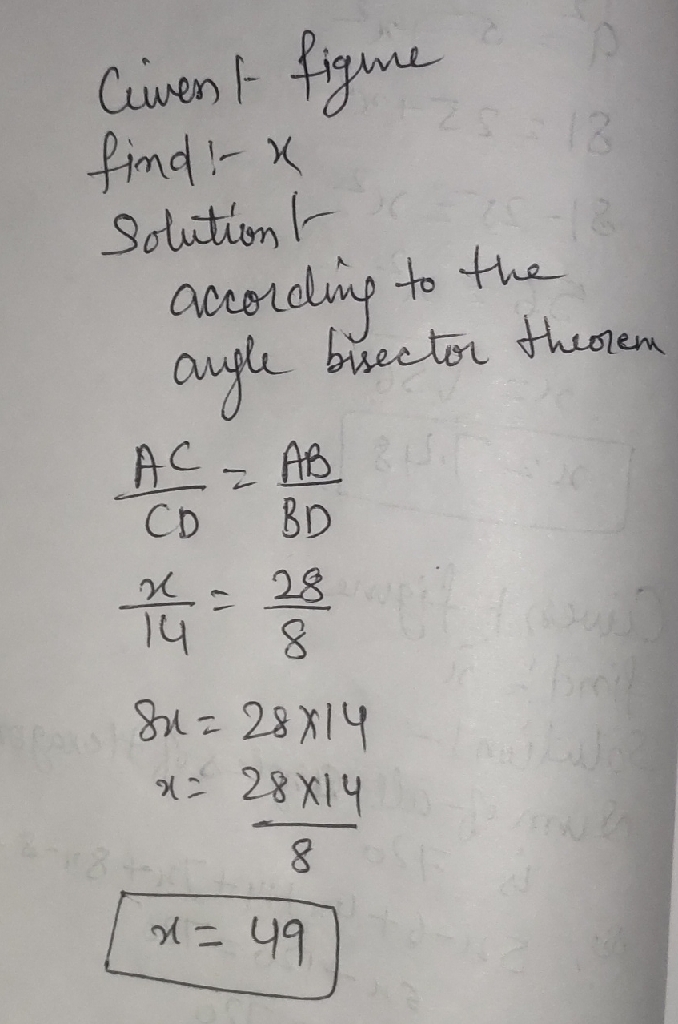 Given :- figure
find :- x
Solution :-
according to the
angle bisector theorem
AC/CD = AB/BD
x/14 = 28/8
8x = 28×14
x = 28×14/8
x = 49